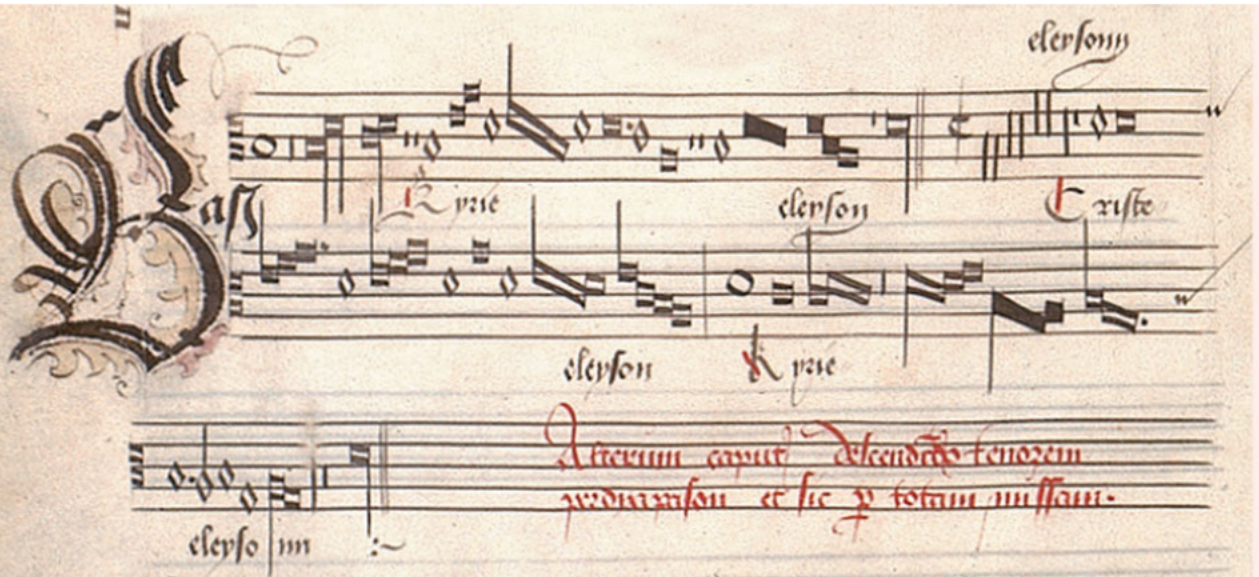 eleyson
Kyrie eleyson Criste
Bass
eleyson Kyrie
Alterum caput descendendo tenorem
perdiapason et sic p totam missam.
eleyson